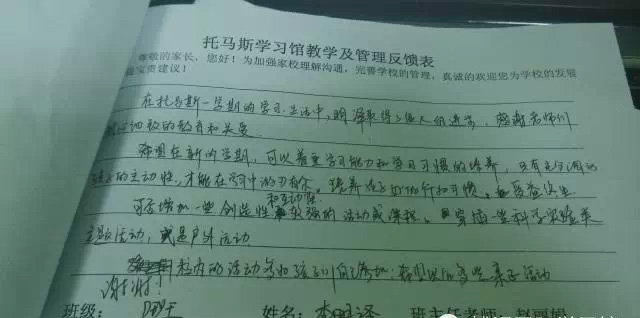 托马斯学习馆教学及管理反馈表
尊敬的家长,您好!为加强家校理解沟通,完善学校的管理,真诚的欢迎您为学校的发展
宝贵建议!
在托马斯一学期的学习生活中,明泽取得了惊人的进步,感谢老师们
细致的教育和关爱
希望在新的学期,可以着重学习能力和学习习惯的培养,只有充分调动
孩子的主动性,才能在学习中游刃有余。培养孩子
和互动性
可否增加一些创造性较强的活动或课程。穿插一些科学实验类
主题活动,或是户外活动
校内的活动多如孩子们自己参加,希望以后多些亲子活动
谢谢!
班级: 姓名:李明泽 班主任老师:赵丽娟